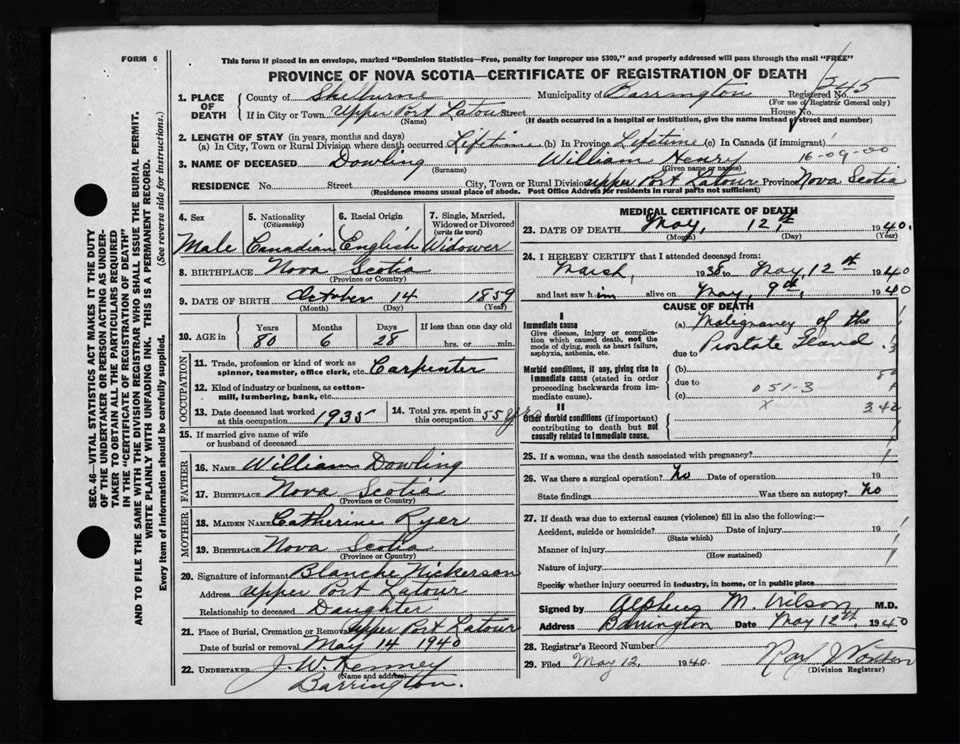 FORM 6
This form if placed in an envelope, marked "Dominion Statistics—Free, penalty for improper use $300," and properly addressed will pass through the mail "FREE"
PROVINCE OF NOVA SCOTIA—CERTIFICATE OF REGISTRATION OF DEATH
245
1. PLACE OF DEATH
County of Shelburne Municipality of Barrington Registered No.
(For use of Registrar General only)
If in City or Town Upper Port Latour Street House No.
(Name) (If death occurred in a hospital or institution, give the name instead of street and number)
2. LENGTH OF STAY (in years, months and days)
(a) In City, Town or Rural Division where death occurred Lifetime (b) In Province Lifetime (c) In Canada (if immigrant)
3. NAME OF DECEASED Dowling William Henry 16-09-00
(Surname) (Given name or names)
RESIDENCE No. Street City, Town or Rural Division Upper Port Latour Province Nova Scotia
(Residence means usual place of abode. Post Office Address for residents in rural parts not sufficient)
4. Sex
Male
5. Nationality
(Citizenship)
Canadian
6. Racial Origin
English
7. Single, Married, Widowed or Divorced
(write the word)
Widower
8. BIRTHPLACE Nova Scotia
(Province or Country)
9. DATE OF BIRTH October 14 1859
(Month) (Day) (Year)
10. AGE in Years Months Days If less than one day old
80 6 28 hrs. or min.
OCCUPATION
11. Trade, profession or kind of work as spinner, teamster, office clerk, etc. Carpenter
12. Kind of industry or business, as cotton-mill, lumbering, bank, etc.
13. Date deceased last worked at this occupation 1935
14. Total yrs. spent in this occupation 55 yrs
15. If married give name of wife or husband of deceased
FATHER
16. NAME William Dowling
17. BIRTHPLACE Nova Scotia
(Province or Country)
MOTHER
18. MAIDEN NAME Catherine Ryer
19. BIRTHPLACE Nova Scotia
(Province or Country)
20. Signature of informant Blanche Nickerson
Address Upper Port Latour
Relationship to deceased Daughter
21. Place of Burial, Cremation or Removal Upper Port Latour
Date of burial or removal May 14 1940
22. UNDERTAKER J. W. Kenney
(Name and address)
Barrington.
MEDICAL CERTIFICATE OF DEATH
23. DATE OF DEATH May, 12th 1940.
(Month) (Day) (Year)
24. I HEREBY CERTIFY that I attended deceased from:
March, 1935 to May, 12th 1940
and last saw him alive on May, 9th, 1940
CAUSE OF DEATH
I
Immediate cause
Give disease, injury or complication which caused death, not the mode of dying, such as heart failure, asphyxia, asthenia, etc.
(a) Malignancy of the
Prostate Gland.
due to
Morbid conditions, if any, giving rise to immediate cause (stated in order proceeding backwards from immediate cause).
(b)
due to 051-3
(c)
x 342
II
Other morbid conditions (if important) contributing to death but not causally related to immediate cause.
25. If a woman, was the death associated with pregnancy?
26. Was there a surgical operation? No Date of operation 19
State findings Was there an autopsy? No
27. If death was due to external causes (violence) fill in also the following:—
Accident, suicide or homicide? Date of injury 19
(State which)
Manner of injury
(How sustained)
Nature of injury
Specify whether injury occurred in industry, in home, or in public place
Signed by Alpheus M. Wilson M.D.
Address Barrington Date May 12th, 1940
28. Registrar's Record Number
29. Filed May 12, 1940.
(Division Registrar)
SEC. 46—VITAL STATISTICS ACT MAKES IT THE DUTY
OF THE UNDERTAKER OR PERSON ACTING AS UNDER-
TAKER TO OBTAIN ALL THE PARTICULARS REQUIRED
IN THE "CERTIFICATE OF REGISTRATION OF DEATH"
AND TO FILE THE SAME WITH THE DIVISION REGISTRAR WHO SHALL ISSUE THE BURIAL PERMIT.
WRITE PLAINLY WITH UNFADING INK. THIS IS A PERMANENT RECORD.
Every item of information should be carefully supplied. (See reverse side for instructions.)